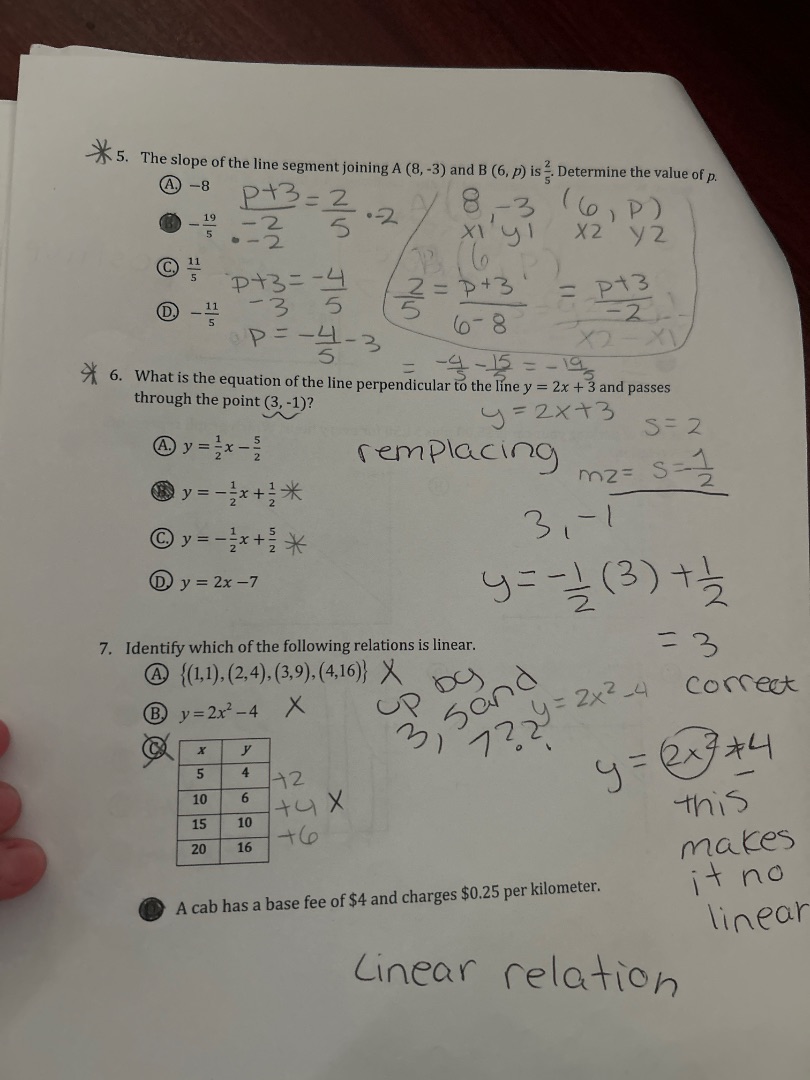 5. The slope of the line segment joining A (8, -3) and B (6, p) is 2/5. Determine the value of p.
A. −8
− 19/5
C. 11/5
D. − 11/5
p+3/-2 = 2/5 · -2
· -2
p+3 = -4/5
-3
p = -4/5 - 3
= -4/5 - 15/5 = - 19/5
8, -3 (6, p)
x1, y1 x2 y2
2/5 = p+3/6-8 = p+3/-2
x2 - x1
6. What is the equation of the line perpendicular to the line y = 2x + 3 and passes
through the point (3, -1)?
y = 2x+3
s = 2
A. y = 1/2 x − 5/2
remplacing
m2 = s = -1/2
B. y = − 1/2 x + 1/2
3, -1
C. y = − 1/2 x + 5/2
y = -1/2 (3) + 1/2
D. y = 2x −7
= 3
correct
7. Identify which of the following relations is linear.
A. {(1,1), (2,4), (3,9), (4,16)} X
up by
3, 5 and
7??
B. y = 2x² − 4 X
y = 2x² -4
C.
x y
5 4
10 6
15 10
20 16
+2
+4 X
+6
y = 2x² - 4
this
makes
it no
linear
A cab has a base fee of $4 and charges $0.25 per kilometer.
Linear relation